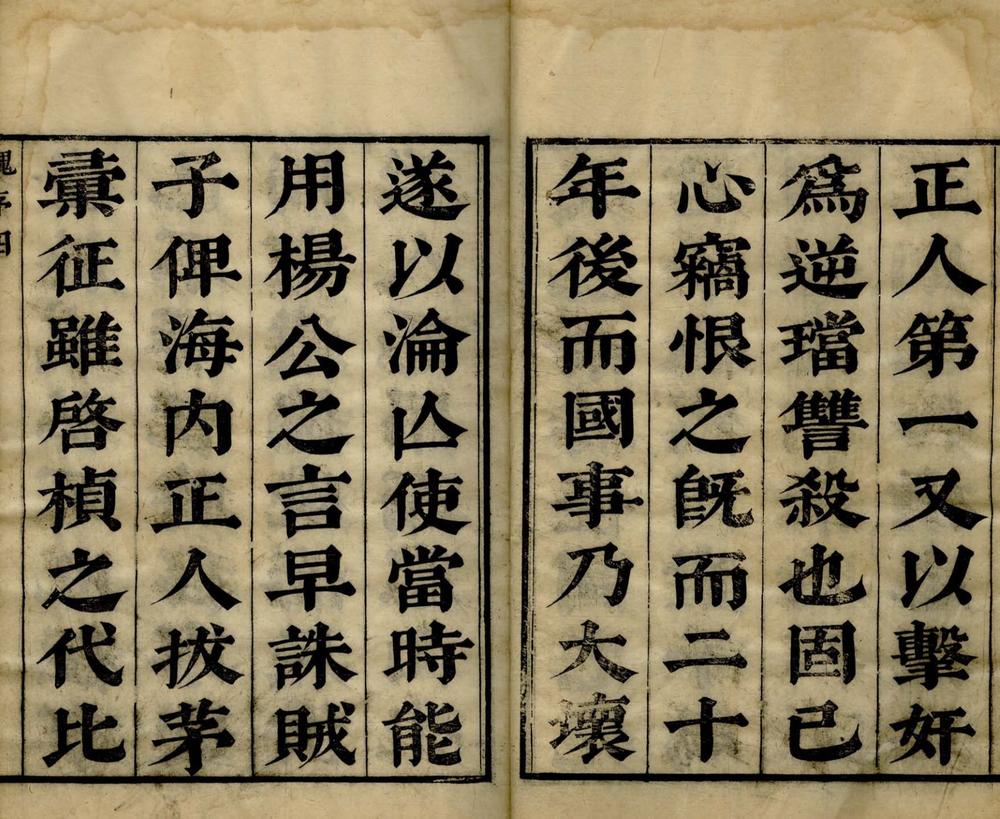 正人第一又以擊奸
爲逆璫讐殺也固已
心竊恨之旣而二十
年後而國事乃大壞
遂以淪亾使當時能
用楊公之言早誅賊
子俾海内正人拔茅
彚征雖啓楨之代比
序四